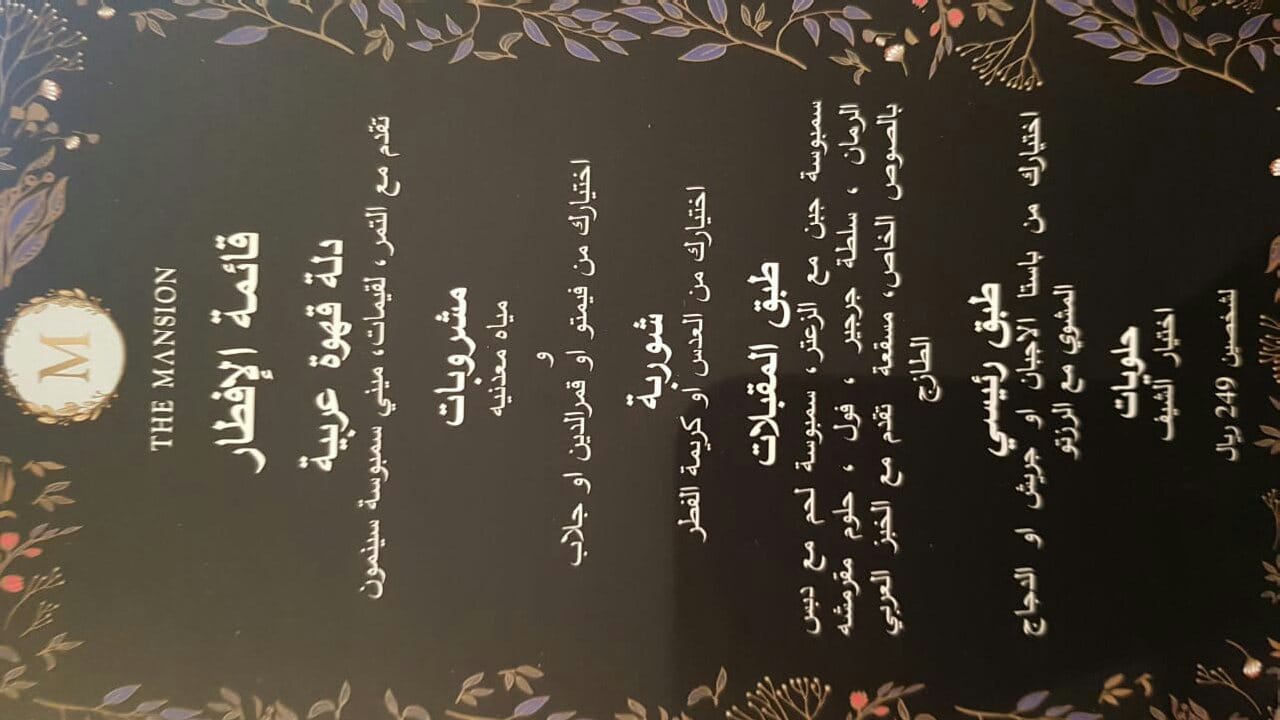 M
THE MANSION
قائمة الإفطار
دلة قهوة عربية
تقدم مع التمر، لقيمات، ميني سمبوسة سينمون
مشروبات
مياه معدنيه
و
اختيارك من فيمتو او قمرالدين او جلاب
شوربة
اختيارك من العدس او كريمة الفطر
طبق المقبلات
سمبوسة جبن مع الزعتر، سمبوسة لحم مع دبس
الرمان ، سلطة جرجير ، فول ، حلوم مقرمشه
بالصوص الخاص، مسقعة تقدم مع الخبز العربي
الطازج
طبق رئيسي
اختيارك من باستا الاجبان او جريش او الدجاج
المشوي مع الرزتو
حلويات
اختيار الشيف
لشخصين 249 ريال